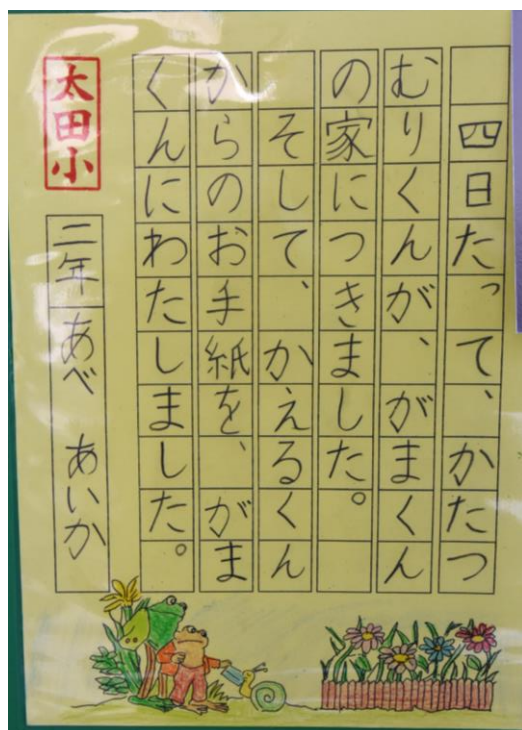 四日たって、かたつ
むりくんが、がまくん
の家につきました。
そして、かえるくん
からのお手紙を、がま
くんにわたしました。
太田小
二年 あべ あいか